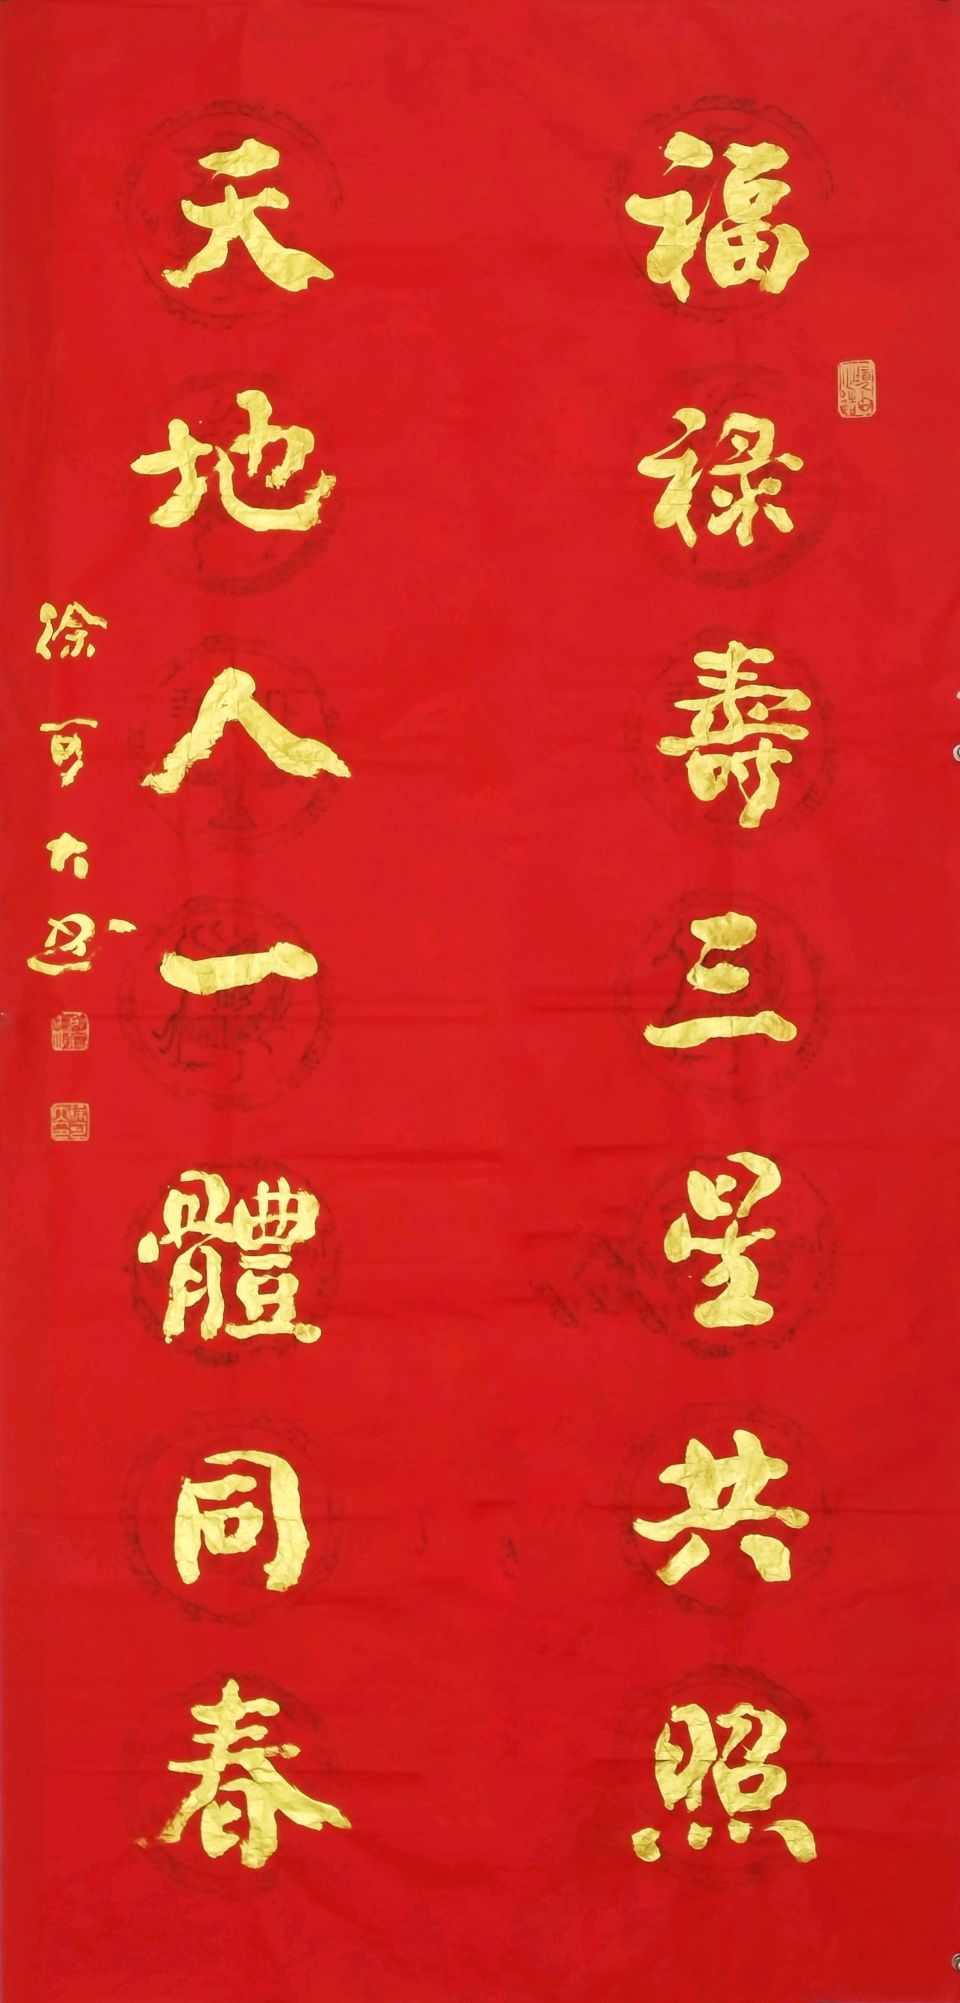 福禄壽三星共照
天地人一體同春
徐可大书